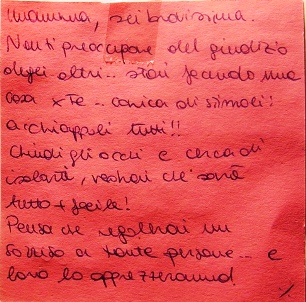 Mamma, sei bravissima.
Non ti preoccupare del giudizio
degli altri.. stai facendo una
cosa x te.. carica di stimoli!!
acchiappali tutti!!
Chiudi gli occhi e cerca di
isolarti, vedrai che sarà
tutto + facile!
Pensa che regalerai un
sorriso a tante persone... e
loro lo apprezzeranno!